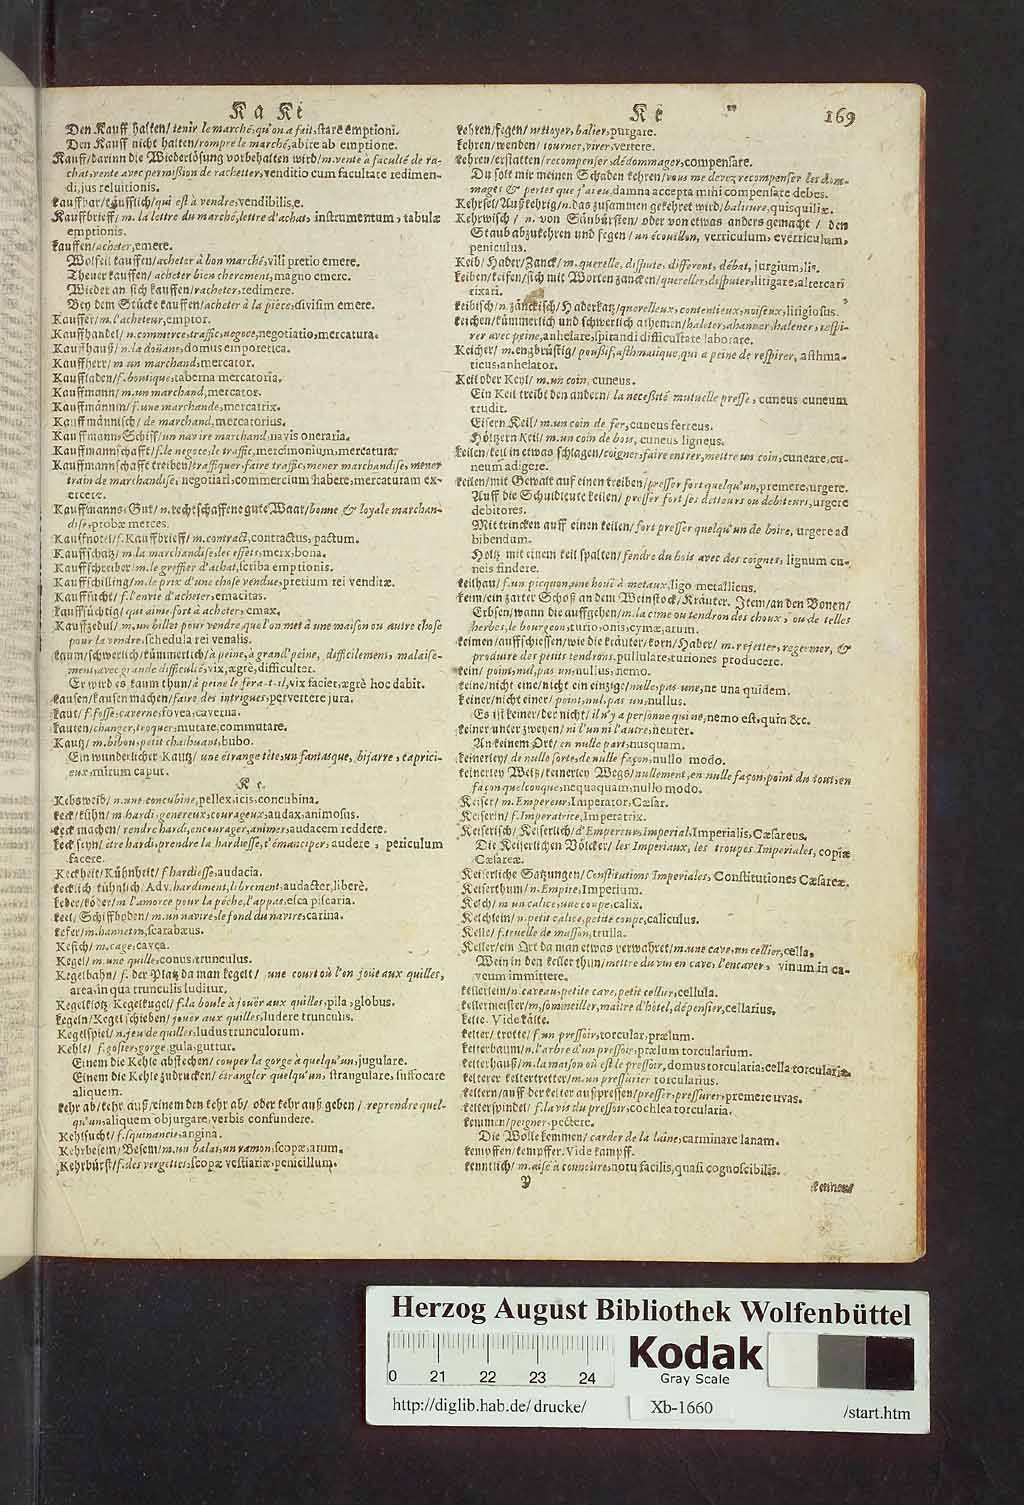 Ka Ke
Den Kauff halten/ tenir le marché, qu'on a fait, stare emptioni.
Den Kauff nicht halten/ rompre le marché, abire ab emptione.
Kauff/ darinn die Wiederlösung vorbehalten wird/ m. vente à faculté de ra-
chat, vente avec permißion de rachetter, venditio cum facultate redimen-
di, jus reluitionis.
kauffbar/ käufflich/ qui est à vendre, vendibilis, e.
Kauffbrieff/ m. la lettre du marché, lettre d'achat, instrumentum, tabulæ
emptionis.
kauffen/ acheter, emere.
Wolfeil kauffen/ acheter à bon marché, vili pretio emere.
Theuer kauffen/ acheter bien cherement, magno emere.
Wieder an sich kauffen/ racheter, redimere.
Bey dem Stücke kauffen/ acheter à la pièce, divisim emere.
Kauffer/ m. l'acheteur, emptor.
Kauffhandel/ n. commerce, traffic, negoce, negotiatio, mercatura.
Kauffhauß/ n. la doüane, domus emporetica.
Kauffherr/ m un marchand, mercator.
Kauffladen/ f. boutique, taberna mercatoria.
Kauffmann/ m. un marchand, mercator.
Kauffmännin/ f. une marchande, mercatrix.
Kauffmännisch/ de marchand, mercatorius.
Kauffmann-Schiff/ un navire marchand, navis oneraria.
Kauffmannschafft/ f. le negoce, le traffic, mercimonium, mercatura.
Kauffmannschafft treiben/ traffiquer, faire traffic, mener marchandise, mener
train de marchandise, negotiari, commercium habere, mercaturam ex-
ercere.
Kauffmanns-Gut/ n. rechtschaffene gute Waar/ bonne & loyale marchan-
dise, probæ merces.
Kauffnotel/ f. Kauffbrieff/ m. contract, contractus, pactum.
Kauffschatz/ m. la marchandise, les effets, merx, bona.
Kauffschreiber/ m. le greffier d'achat, scriba emptionis.
Kauffschilling/ m. le prix d'une chose vendue, pretium rei venditæ.
Kauffsucht/ f. l'envie d'acheter, emacitas.
kauffsüchtig/ qui aime fort à acheter, emax.
Kauffzedul/ m. un billet pour vendre, que l'on met à une maison ou autre chose
pour la vendre, schedula rei venalis.
kaum/ schwerlich/ kümmerlich/ à peine, à grand' peine, difficilement, malaise-
ment, avec grande difficulté, vix, ægrè, difficulter.
Er wird es kaum thun/ à peine le fera-t-il, vix facier, ægrè hoc dabit.
kausen/ kausen machen/ faire des intrigues, pervertere jura.
kaut/ f. fosse, caverne, fovea, caverna.
kauten/ changer, troquer, mutare, commutare.
Kautz/ m. bibou, petit chathuant, bubo.
Ein wunderlicher Kautz/ une étrange tête, un fantasque, bijarre, caprici-
eux, mirum caput.
Ke.
Kebsweib/ n. une concubine, pellex, icis, concubina.
keck/ kühn/ m hardi, genereux, courageux, audax, animosus.
keck machen/ rendre hardi, encourager, animer, audacem reddere.
keck seyn/ être hardi, prendre la hardiesse, s'émanciper, audere, periculum
facere.
Keckheit/ Kühnheit/ f hardiesse, audacia.
kecklich/ kühnlich/ Adv. hardiment, librement, audacter, liberè.
keder/ köder/ m l'amorce pour la pêche, l'appas, esca piscaria.
keel/ Schiffboden/ m. un navire, le fond du navire, carina.
kefer/ m. hanneton, scarabæus.
Kefich/ m. cage, cavea.
Kegel/ m. une quille, conus, trunculus.
Kegelbahn/ f. der Platz da man kegelt/ une court où l'on joüe aux quilles,
area, in qua trunculis luditur.
Kegelklotz Kegelkugel/ f. la boule à joüer aux quilles, pila, globus.
kegeln/ Kegel schieben/ joüer aux quilles, ludere trunculis.
Kegelspiel/ n. jeu de quilles, ludus trunculorum.
Kehle/ f. gosier, gorge, gula, guttur.
Einem die Kehle abstechen/ couper la gorge à quelqu'un, jugulare.
Einem die Kehle zudrucken/ étrangler quelqu'un, strangulare, suffocare
aliquem.
kehr ab/ kehr auß/ einem den kehr ab/ oder kehr auß geben/ reprendre quel-
qu'un, aliquem objurgare, verbis confundere.
Kehlsucht/ f. squinancie, angina.
Kehrbesem/ Besem/ m. un balai, un ramon, scopæ, arum.
Kehrbürst/ f. des vergettes, scopæ vestiariæ, penicillum.
Ke 169
kehren/ fegen/ nettoyer, balier, purgare.
kehren/ wenden/ tourner, virer, vertere.
kehren/ erstatten/ recompenser, dédommager, compensare.
Du solt mir meinen Schaden kehren/ vous me devez recompenser les dom-
mages & pertes que j'ai eu, damna accepta mihi compensare debes.
Kehrsel/ Außkehrig/ n. das zusammen gekehret wird/ baliure, quisquiliæ.
Kehrwisch/ n. von Säubürsten/ oder von etwas anders gemacht/ den
Staub abzukehren und fegen/ un écouillon, verriculum, everriculum,
peniculus.
Keib/ Hader/ Zanck/ m. querelle, dispute, different, débat, jurgium, lis.
keiben/ keifen/ sich mit Worten zancken/ quereller, disputer, litigare, altercari
rixari.
keibisch/ n. zänckisch/ Haderkatz/ querelleux, contentieux, noiseux, litigiosus.
keichen/ kümmerlich und schwerlich athemen/ haleter, ahanner, halener, respi-
rer avec peine, anhelare, spirandi difficultate laborare.
Keicher/ m. engbrüstig/ poußif, asthmatique, qui a peine de respirer, asthma-
ticus, anhelator.
Keil oder Keyl/ m. un coin, cuneus.
Ein Keil treibt den andern/ la necessité mutuelle presse, cuneus cuneum
trudit.
Eisern Keil/ m. un coin de fer, cuneus ferreus.
Höltzern Keil/ m. un coin de bois, cuneus ligneus.
keilen/ keil in etwas schlagen/ coigner, faire entrer, mettre un coin, cuneare, cu-
neum adigere.
keilen/ mit Gewalt auf einen treiben/ presser fort quelqu'un, premere, urgere.
Auff die Schuldleute keilen/ presser fort ses detteurs ou debiteurs, urgere
debitores.
Mit trincken auff einen keilen/ fort presser quelqu'un de boire, urgere ad
bibendum.
Holtz mit einem keil spalten/ fendre du bois avec des coignes, lignum cu-
neis findere.
keilhau/ f. un picquon, une houë à metaux, ligo metallicus.
keim/ ein zarter Schoß an dem Weinstock/ Kräuter. Item/ an den Bonen/
Erbsen/ wann die auffgehen/ m. la cime ou tendron des choux, ou de telles
herbes, le bourgeon, turio, onis, cymæ, arum.
keimen/ auffschiessen/ wie die kräuter/ korn/ Haber/ m. rejetter, regermer, &
produire des petits tendrons, pullulare, turiones producere.
kein/ point, nul, pas un, nullus, nemo.
keine/ nicht eine/ nicht ein einzige/ nulle, pas une, ne una quidem.
keiner/ nicht einer/ point, nul, pas un, nullus.
Es ist keiner/ der nicht/ il n'y a personne qui ne, nemo est, quin &c.
keiner unter zweyen/ ni l'un ni l'autre, neuter.
An keinem Ort/ en nulle part, nusquam.
keinerley/ de nulle sorte, de nulle façon, nullo modo.
keinerley Weiß/ keinerley Wegs/ nullement, en nulle façon, point du tout, en
façon quelconque, nequaquam, nullo modo.
Keiser/ m. Empereur, Imperator, Cæsar.
Keiserin/ f. Imperatrice, Imperatrix.
Keiserisch/ Keiserlich/ d'Empereur, Imperial, Imperialis, Cæsareus.
Die Keiserlichen Völcker/ les Imperiaux, les troupes Imperiales, copiæ
Cæsareæ.
Keiserliche Satzungen/ Constitutions Imperiales, Constitutiones Cæsareæ.
Keiserthum/ n. Empire, Imperium.
Kelch/ m un calice, une coupe, calix.
Kelchlein/ n. petit calice, petite coupe, caliculus.
Kelle/ f. truelle de masson, trulla.
Keller/ ein Ort da man etwas verwahret/ m. une cave, un cellier, cella.
Wein in den keller thun/ mettre du vin en cave, l'encaver, vinum in ca-
veum immittere.
kellerlein/ n. caveau, petite cave, petit cellier, cellula.
kellermeister/ m. sommeiller, maître d'hôtel, dépensier, cellarius.
kelte. Vide kälte.
kelter/ trotte/ f. un pressoir, torcular, prælum.
kelterbaum/ n. l'arbre d'un pressoir, prælum torcularium.
kelterhauß/ m. la maison où est le pressoir, domus torcularia, cella torcularia.
kelterer keltertretter/ m. un pressurier torcularius.
keltern/ auff der kelter außpressen/ presser, pressurer, premere uvas.
kelterspindel/ f. la vis du pressoir, cochlea torcularia.
kemmen/ peigner, pectere.
Die Wolle kemmen/ carder de la laine, carminare lanam.
kempffen/ kempffer. Vide kampff.
kenntlich/ m. aisé à connoître, notu facilis, quasi cognoscibilis.
Y
Herzog August Bibliothek Wolfenbüttel
0 21 22 23 24
Kodak
Gray Scale
http://diglib.hab.de/drucke/ Xb-1660 /start.htm